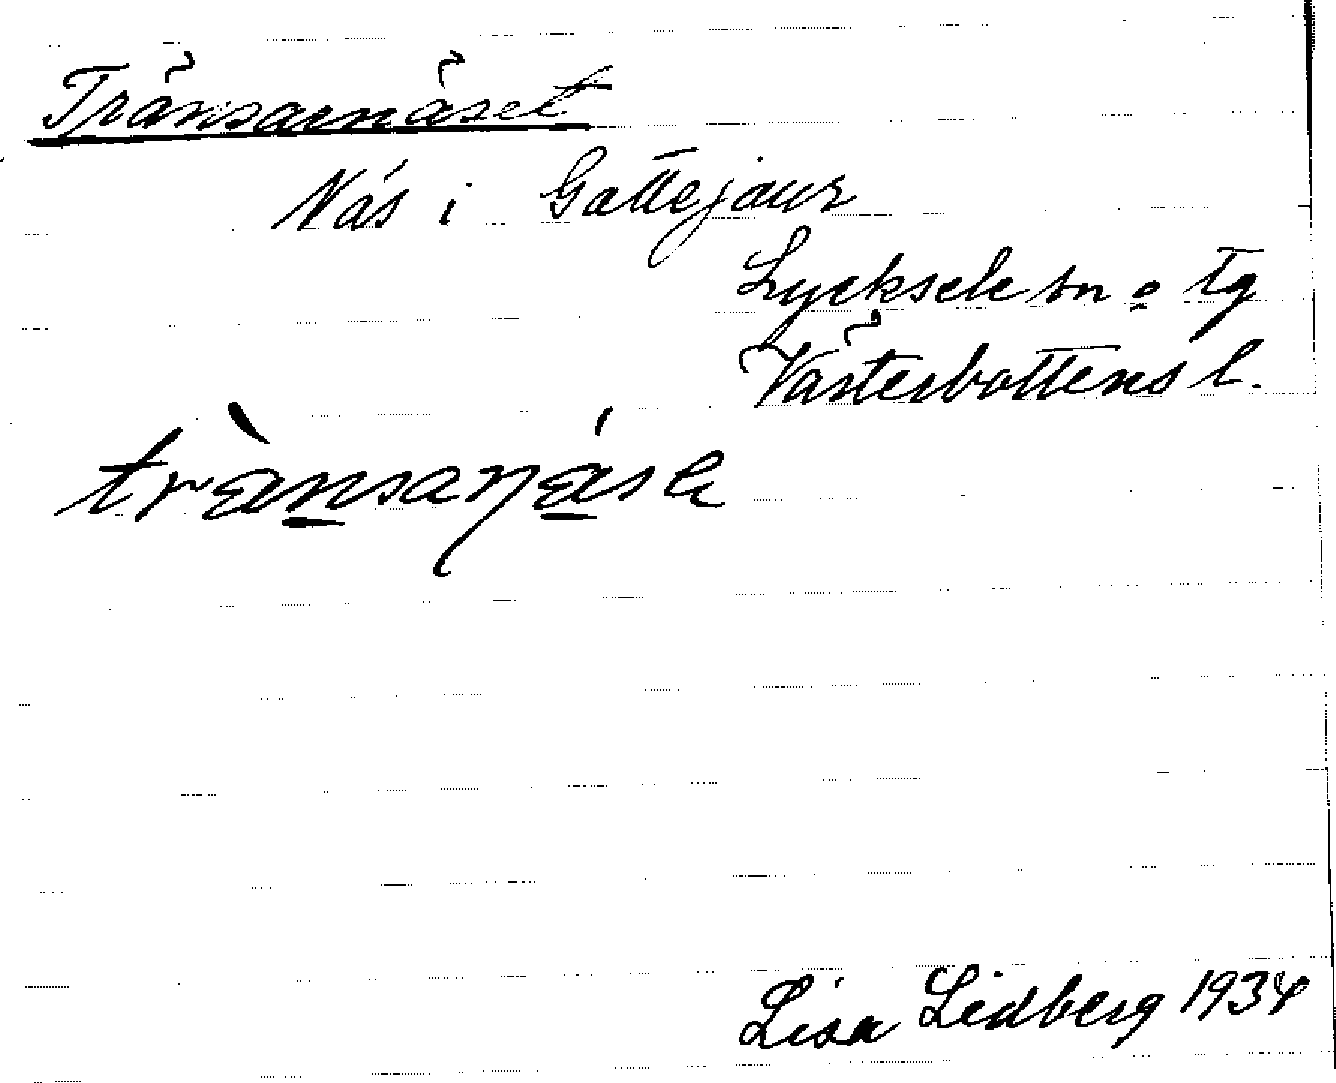 Tränsarnäset
Näs i Gattejaur
Lycksele sn o tg
Västerbottens l.
trànsaŋása
Lisa Lidberg 1934